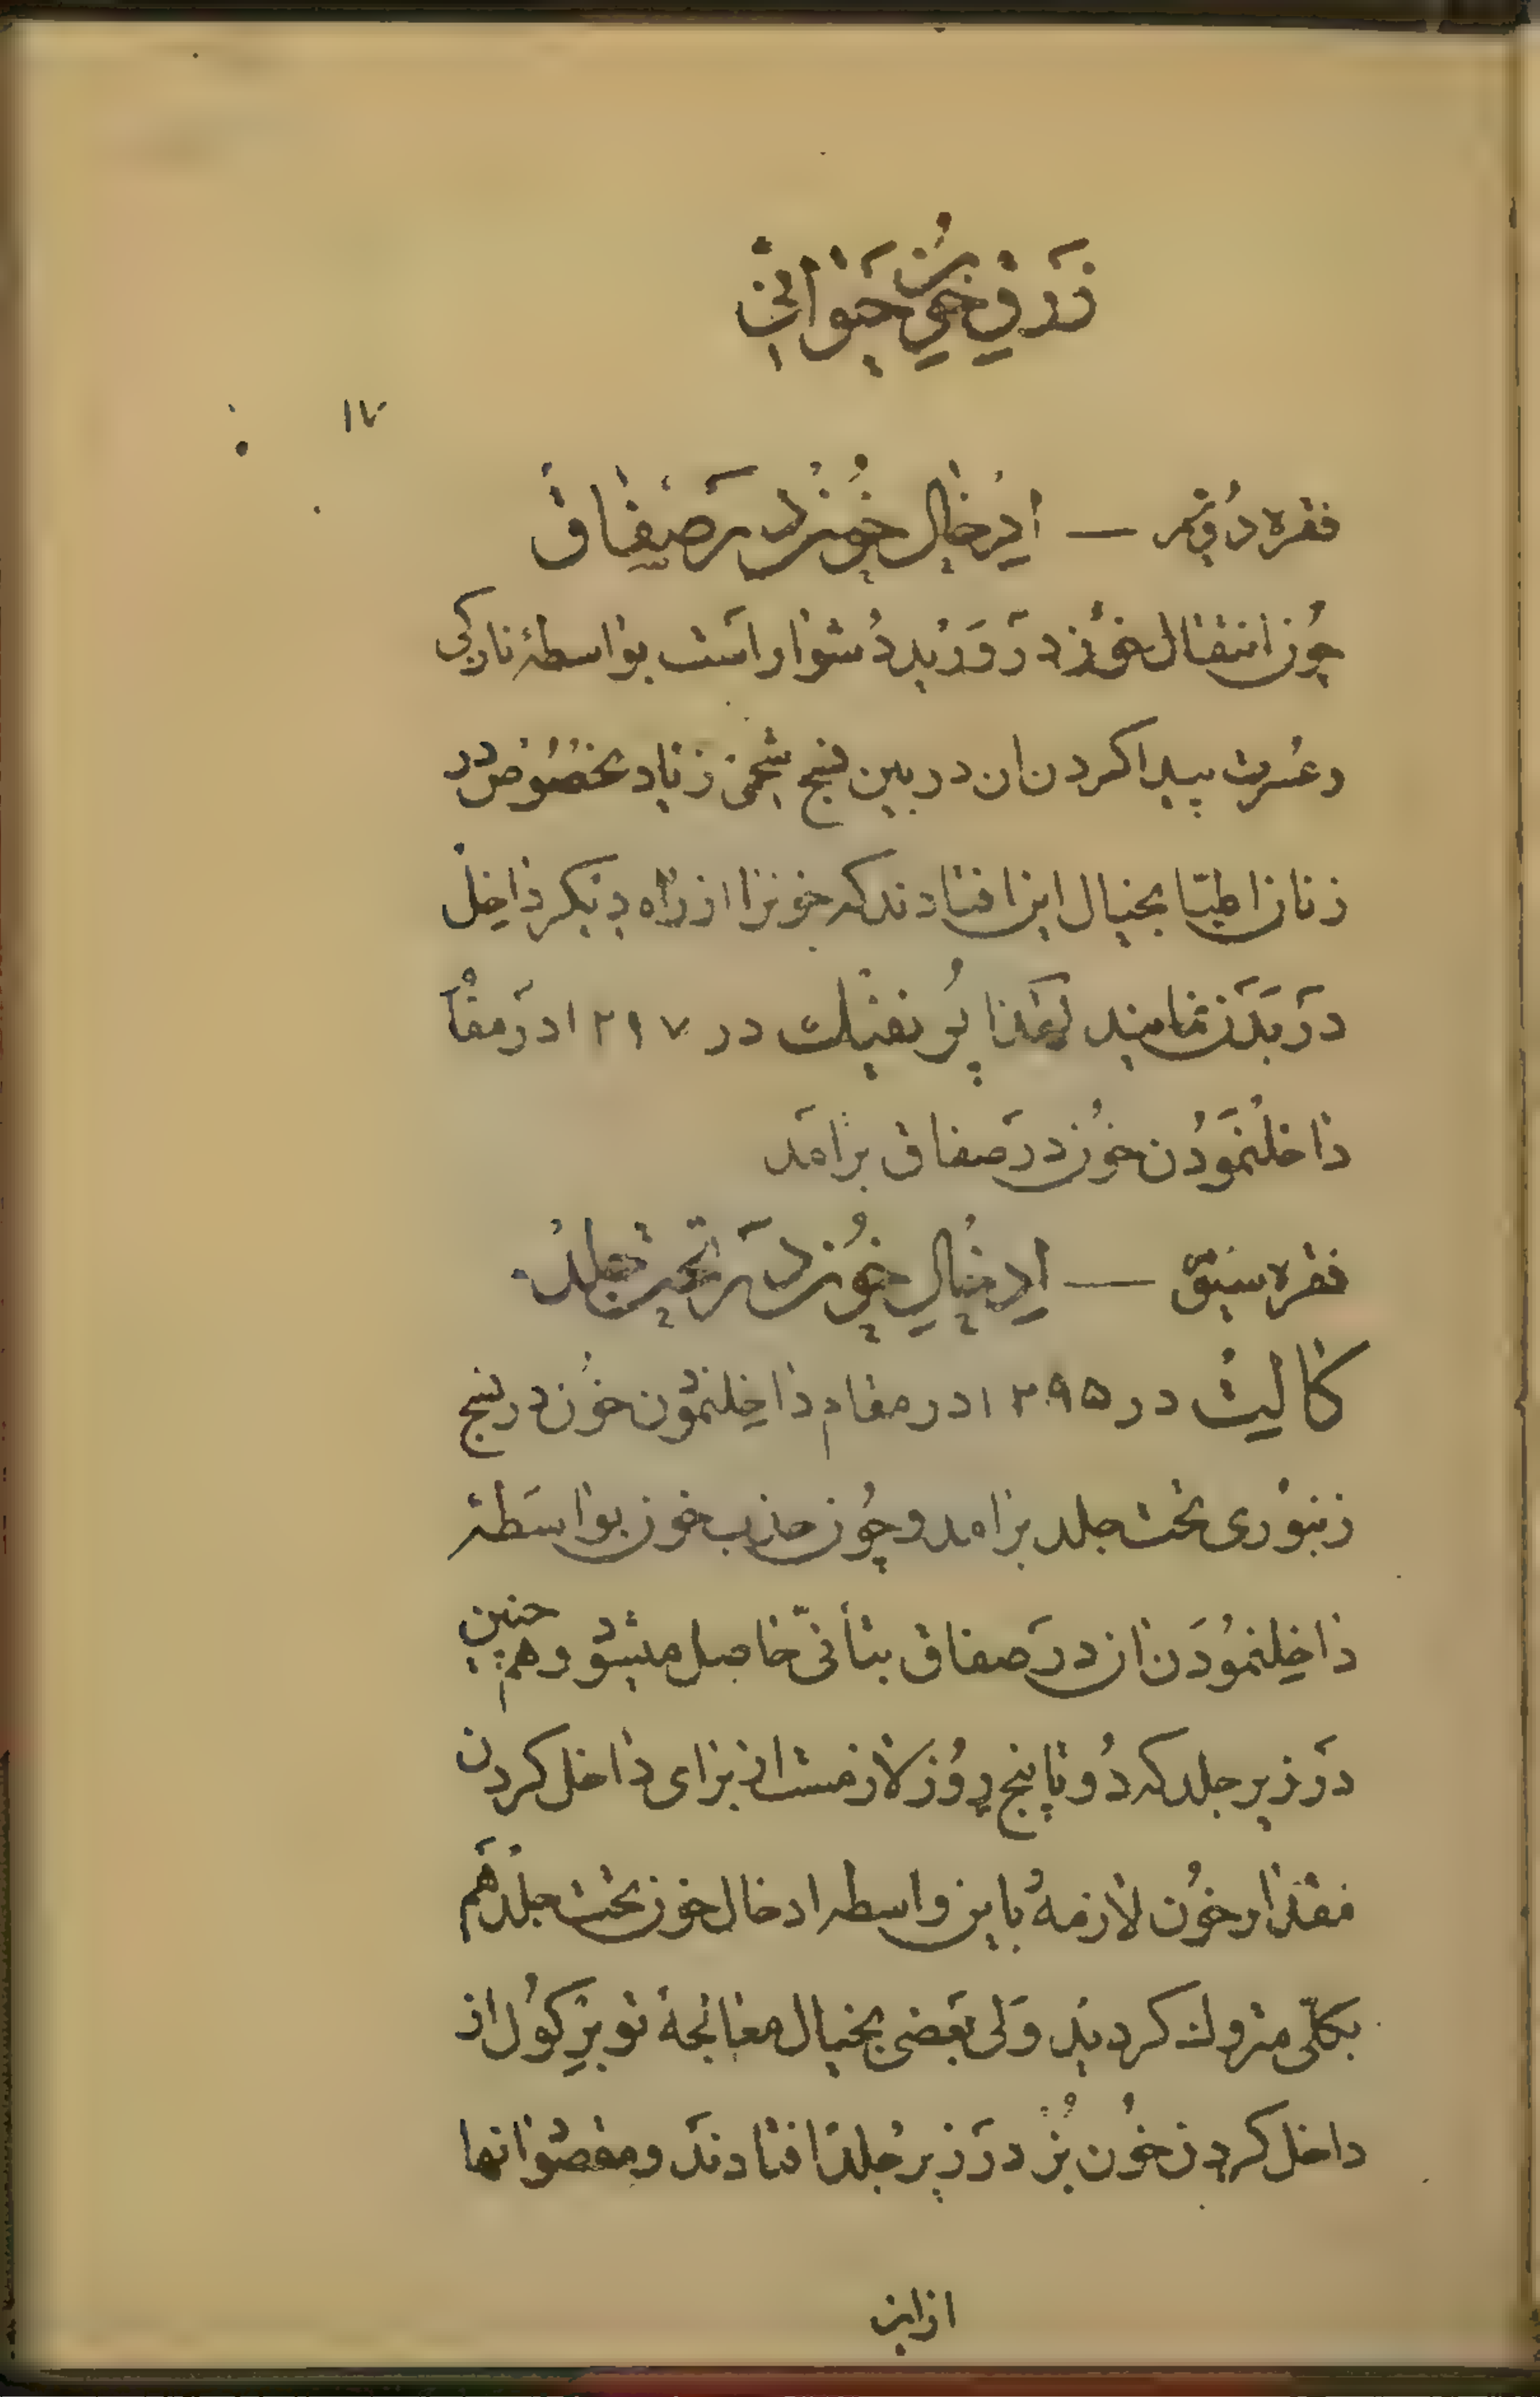 زرق خون حیوانی
فقره دویم — ادخال خون در صفاق
چون انتقال خون در ورید دشوار است بواسطهٔ نازکی
و عسرت پیدا کردن ان در بین نسج شحمی زیاد بخصوص در
زنان اطبا بخیال این افتادند که خونرا از راه دیگر داخل
در بدن نمایند لهذا پُرنفیلت در ۱۲۹۷ در مقام
داخل نمودن خون در صفاق برامد
فقره سیّم — ادخال خون در تحت جلد
کالیث در ۱۲۹۵ در مقام داخل نمودن خون در نسج
زنبوری تحت جلد برامد و چون جذب خون بواسطهٔ
داخل نمودن ان در صفاق بتأنی حاصل میشود و همچنین
در زیر جلد که دو تا پنج روز لازمست از برای داخل کردن
مقدار خون لازمه باین واسطه ادخال خون تحت جلد هم
بکلّی متروک کردید ولی بعضی بخیال معالجهٔ توبرکول از
داخل کردن خون بز در زیر جلد افتادند و مقصود انها
از این